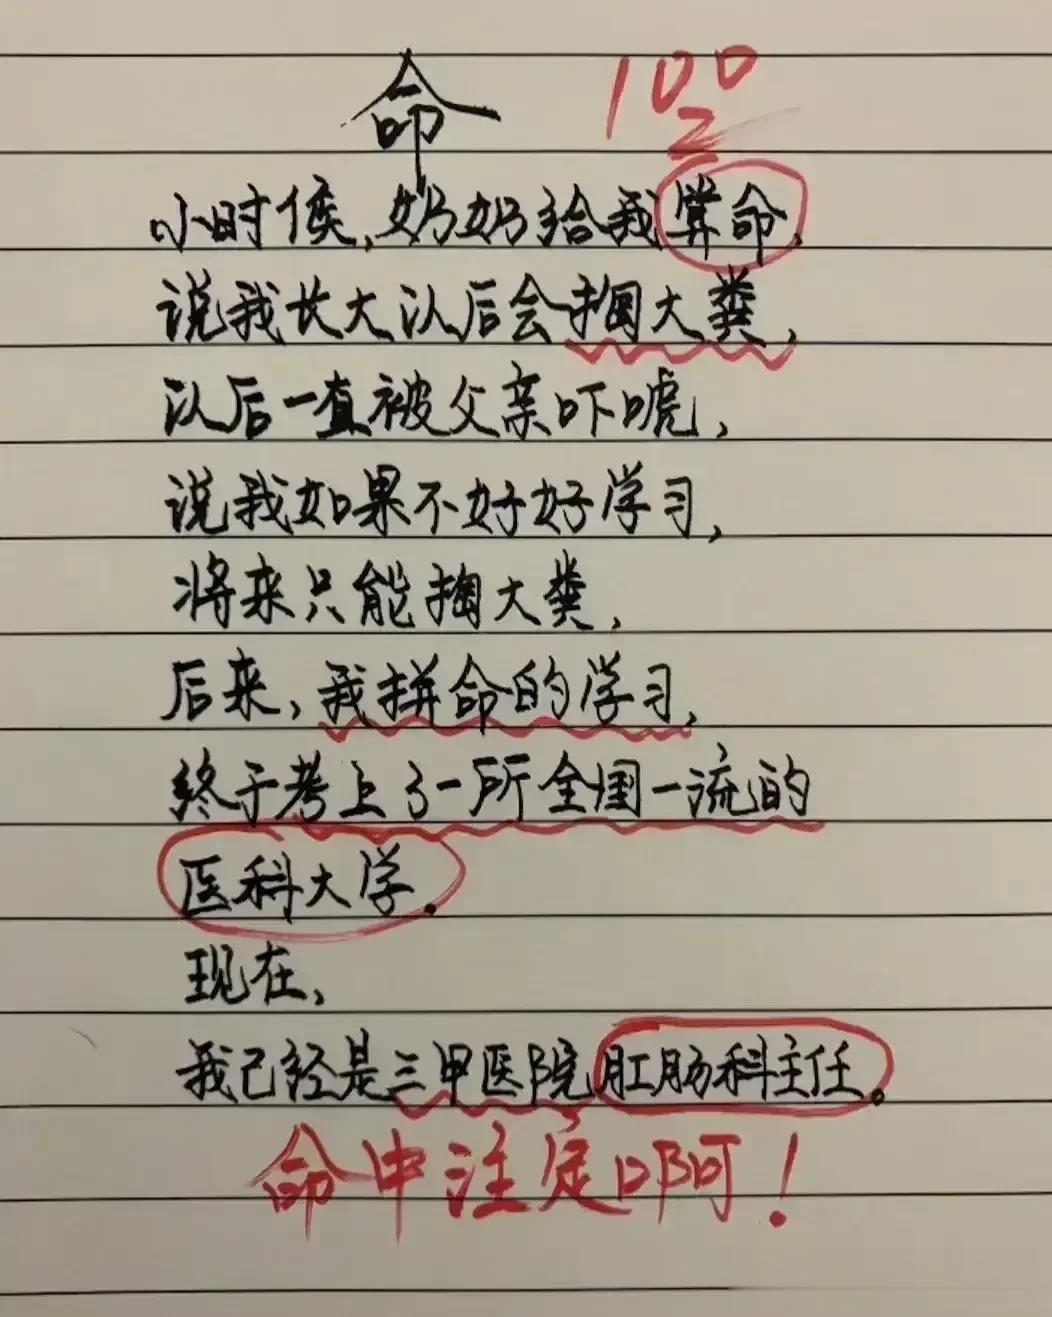 命
100
小时候,奶奶给我算命,
说我长大以后会掏大粪,
以后一直被父亲吓唬,
说我如果不好好学习,
将来只能掏大粪,
后来,我拼命的学习,
终于考上了一所全国一流的
医科大学。
现在,
我已经是三甲医院肛肠科主任。
命中注定啊!